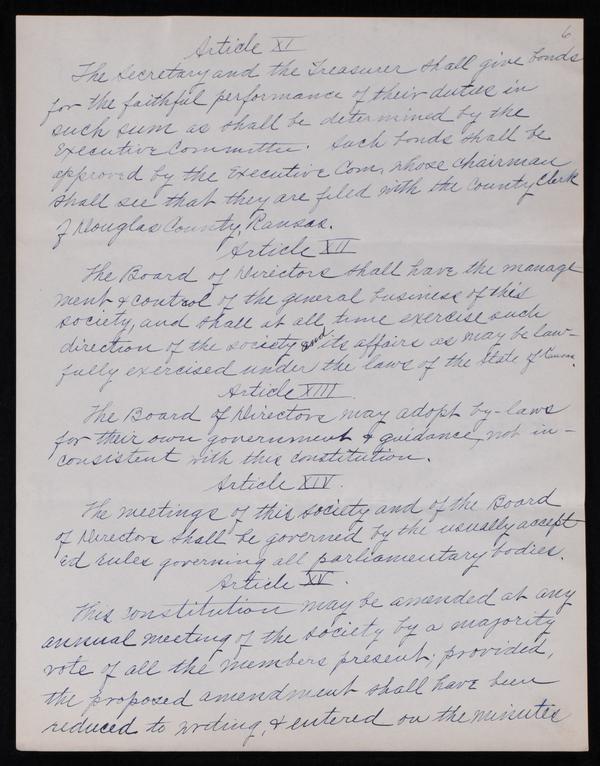 6
Article XI
The Secretary and the Treasurer shall give bonds
for the faithful performance of their duties in
such sum as shall be determined by the
Executive Committee. Such bonds shall be
approved by the Executive Com, whose chairman
shall see that they are filed with the County Clerk
of Douglas County, Kansas.
Article XII
The Board of Directors shall have the manage
ment & control of the general business of this
society, and shall at all time exercise such
direction of the society and its affairs as may be law-
fully exercised under the laws of the State of Kansas.
Article XIII
The Board of Directors may adopt by-laws
for their own government & guidance, not in-
consistent with this constitution.
Article XIV.
The meetings of this society and of the Board
of Directors shall be governed by the usually accept
ed rules governing all parliamentary bodies.
Article XV.
This constitution may be amended at any
annual meeting of the society by a majority
vote of all the members present; provided,
the proposed amendment shall have been
reduced to writing, & entered on the minutes